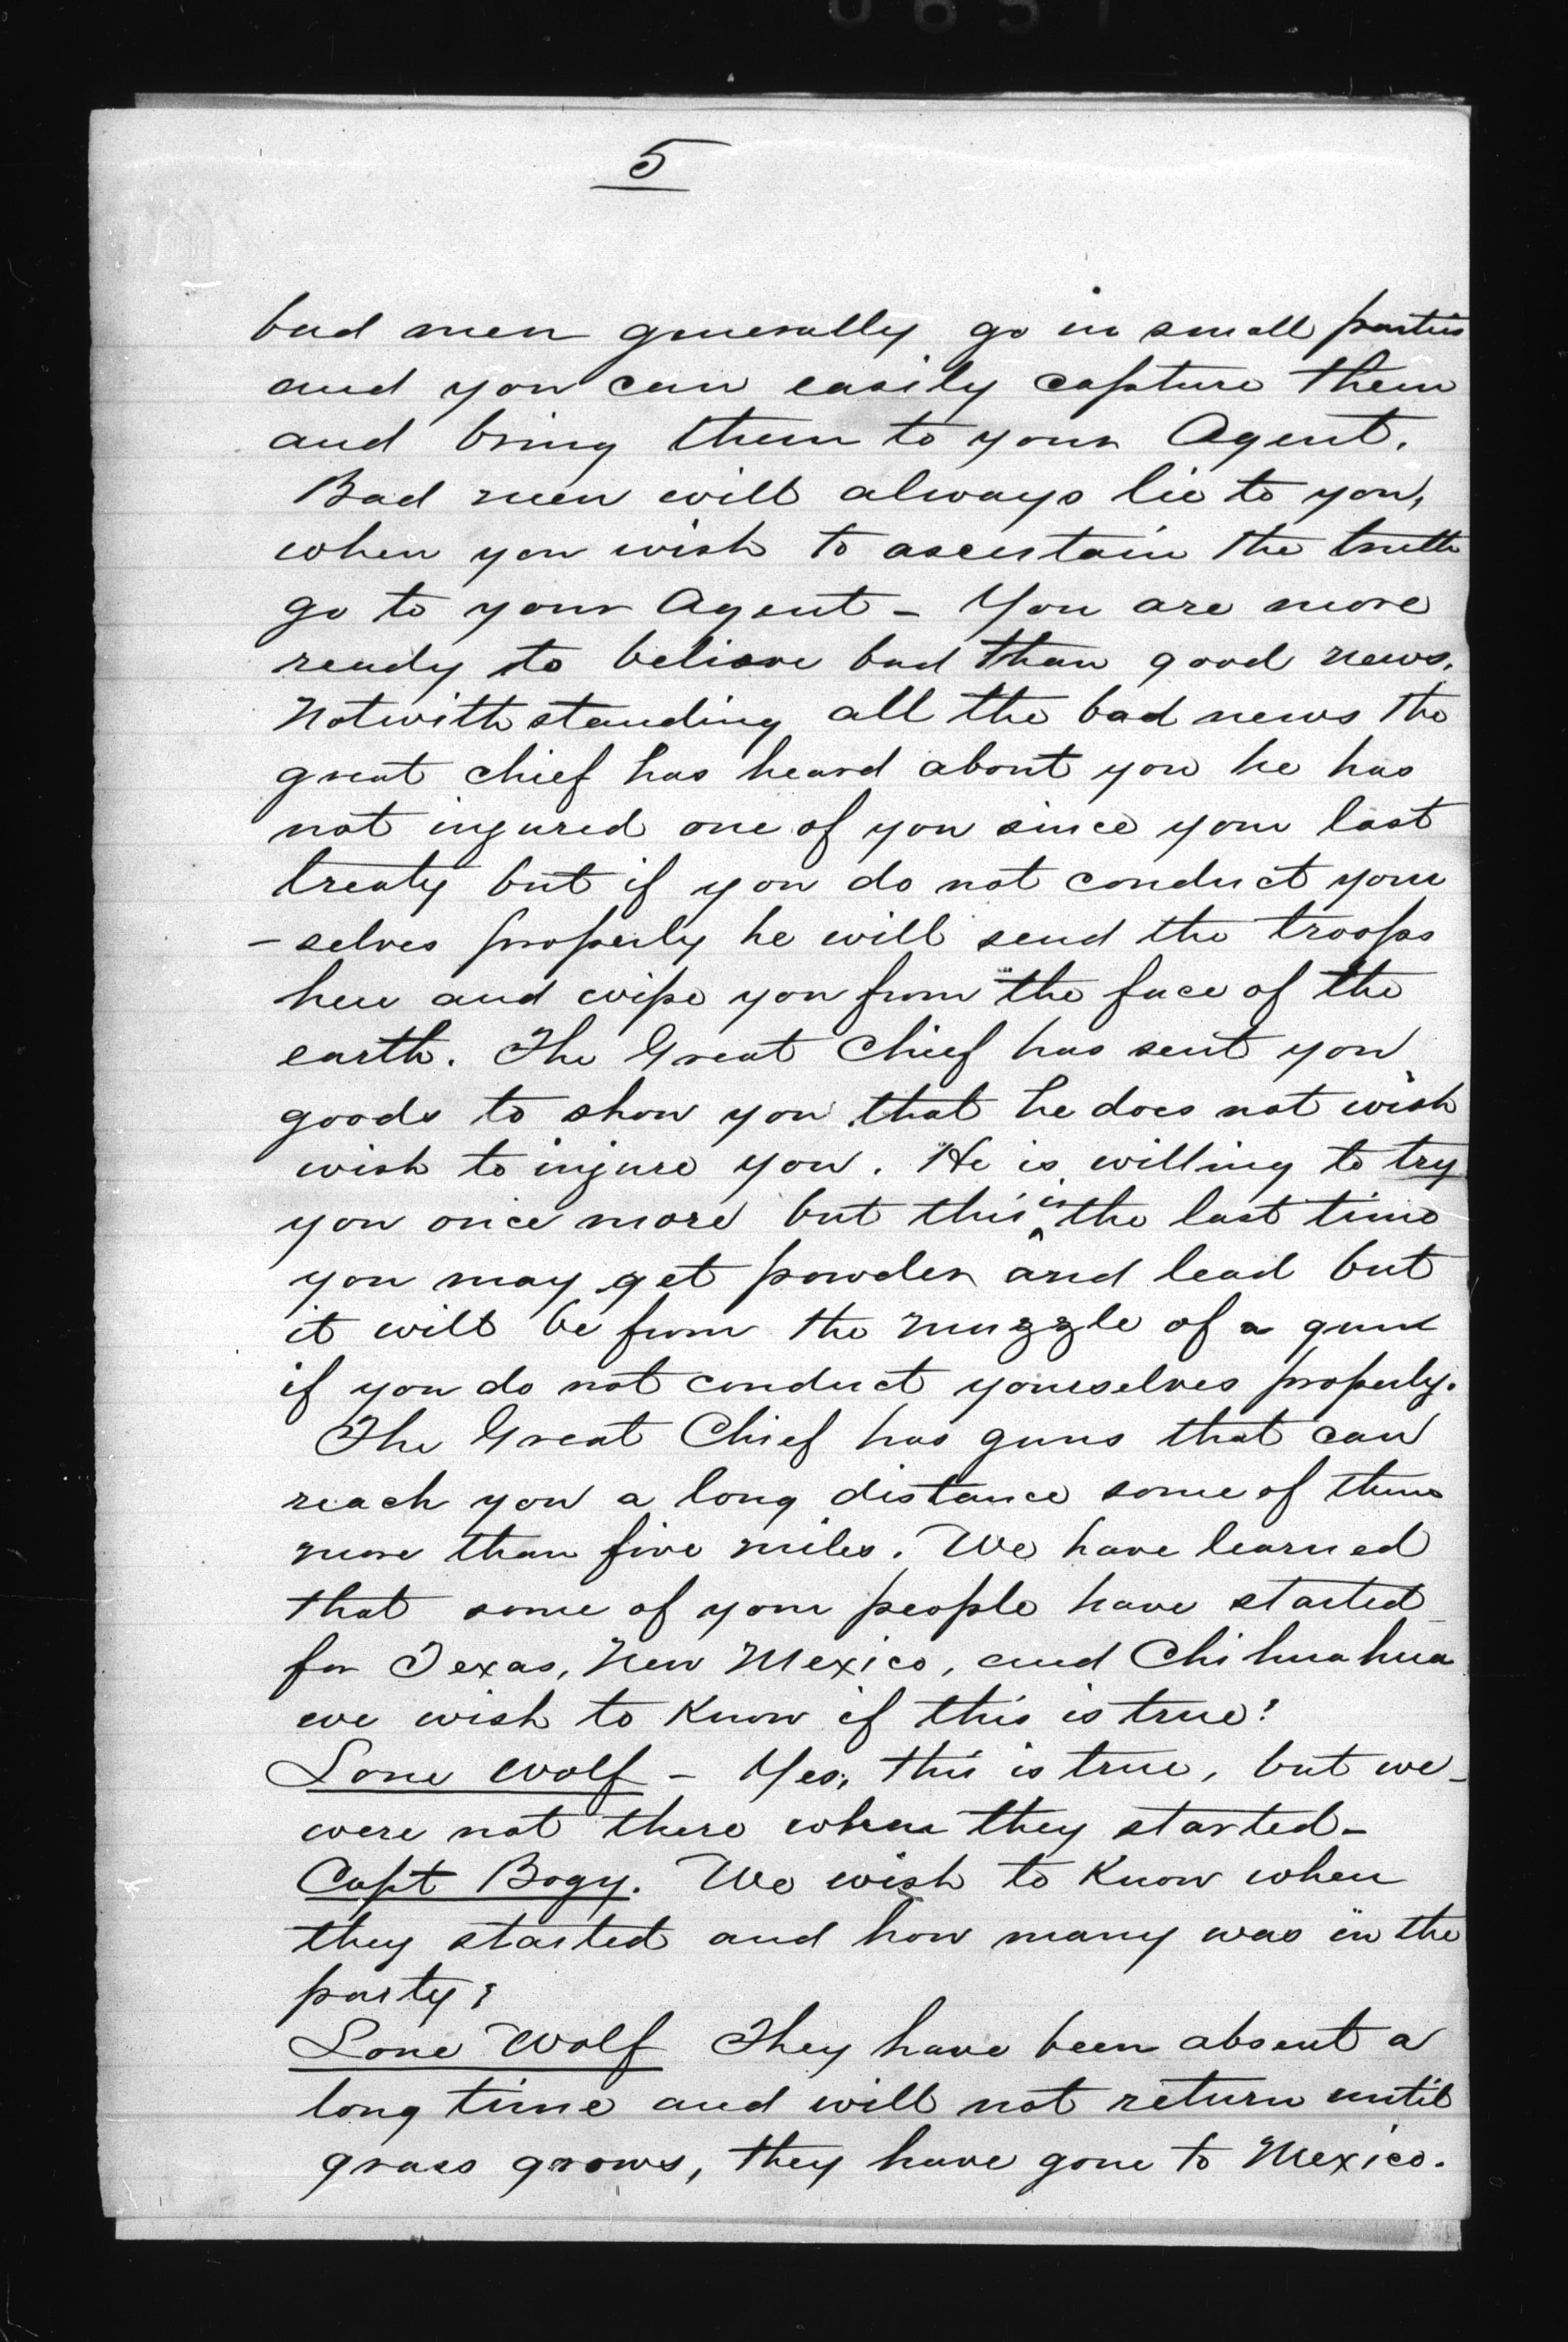 5
bad men generally go in small parties
and you can easily capture them
and bring them to your Agent.
Bad men will always lie to you,
when you wish to ascertain the truth
go to your Agent - You are more
ready to believe bad than good news.
Notwithstanding all the bad news the
great chief has heard about you he has
not injured one of you since your last
treaty but if you do not conduct your
-selves properly he will send the troops
here and wipe you from the face of the
earth. The Great Chief has sent you
goods to show you that he does not wish
wish to injure you. He is willing to try
you once more but this is the last time
you may get powder and lead but
it will be from the muzzle of a gun
if you do not conduct yourselves properly.
The Great Chief has guns that can
reach you a long distance some of them
more than five miles. We have learned
that some of your people have started
for Texas, New Mexico, and Chihuahua
we wish to know if this is true?
Lone Wolf - Yes, this is true, but we
were not there when they started -
Capt Bogy. We wish to know when
they started and how many was in the
party?
Lone Wolf They have been absent a
long time and will not return until
grass grows, they have gone to Mexico.